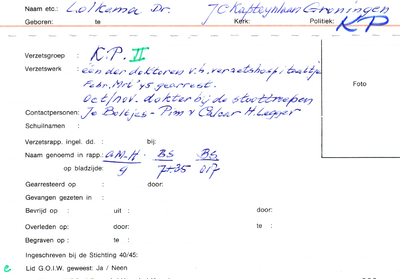 Naam etc.: Lolkema Dr. JC Kapteynlaan Groningen
Geboren: te Kerk: Politiek: KP
Verzetsgroep : K.P. II
Verzetswerk : één der doktoren v.h. verzetshospitaaltje
Febr. Mrt '45 gearrest.
Oct/nov. dokter bij de stoottroepen
Foto
Contactpersonen: Je Boltjes - Pim v Calcar H. Legger
Schuilnaam :
Verzetsrapp. ingel. dd. : bij:
Naam genoemd in rapp.: GM.H. BS BS
op bladzijde: 9 7+35 017
Gearresteerd op : door:
Gevangen gezeten in :
Bevrijd op : uit : door:
Overleden op: door: te :
Begraven op : te :
Ingeschreven bij de Stichting 40/45:
e Lid G.O.I.W. geweest: Ja / Neen